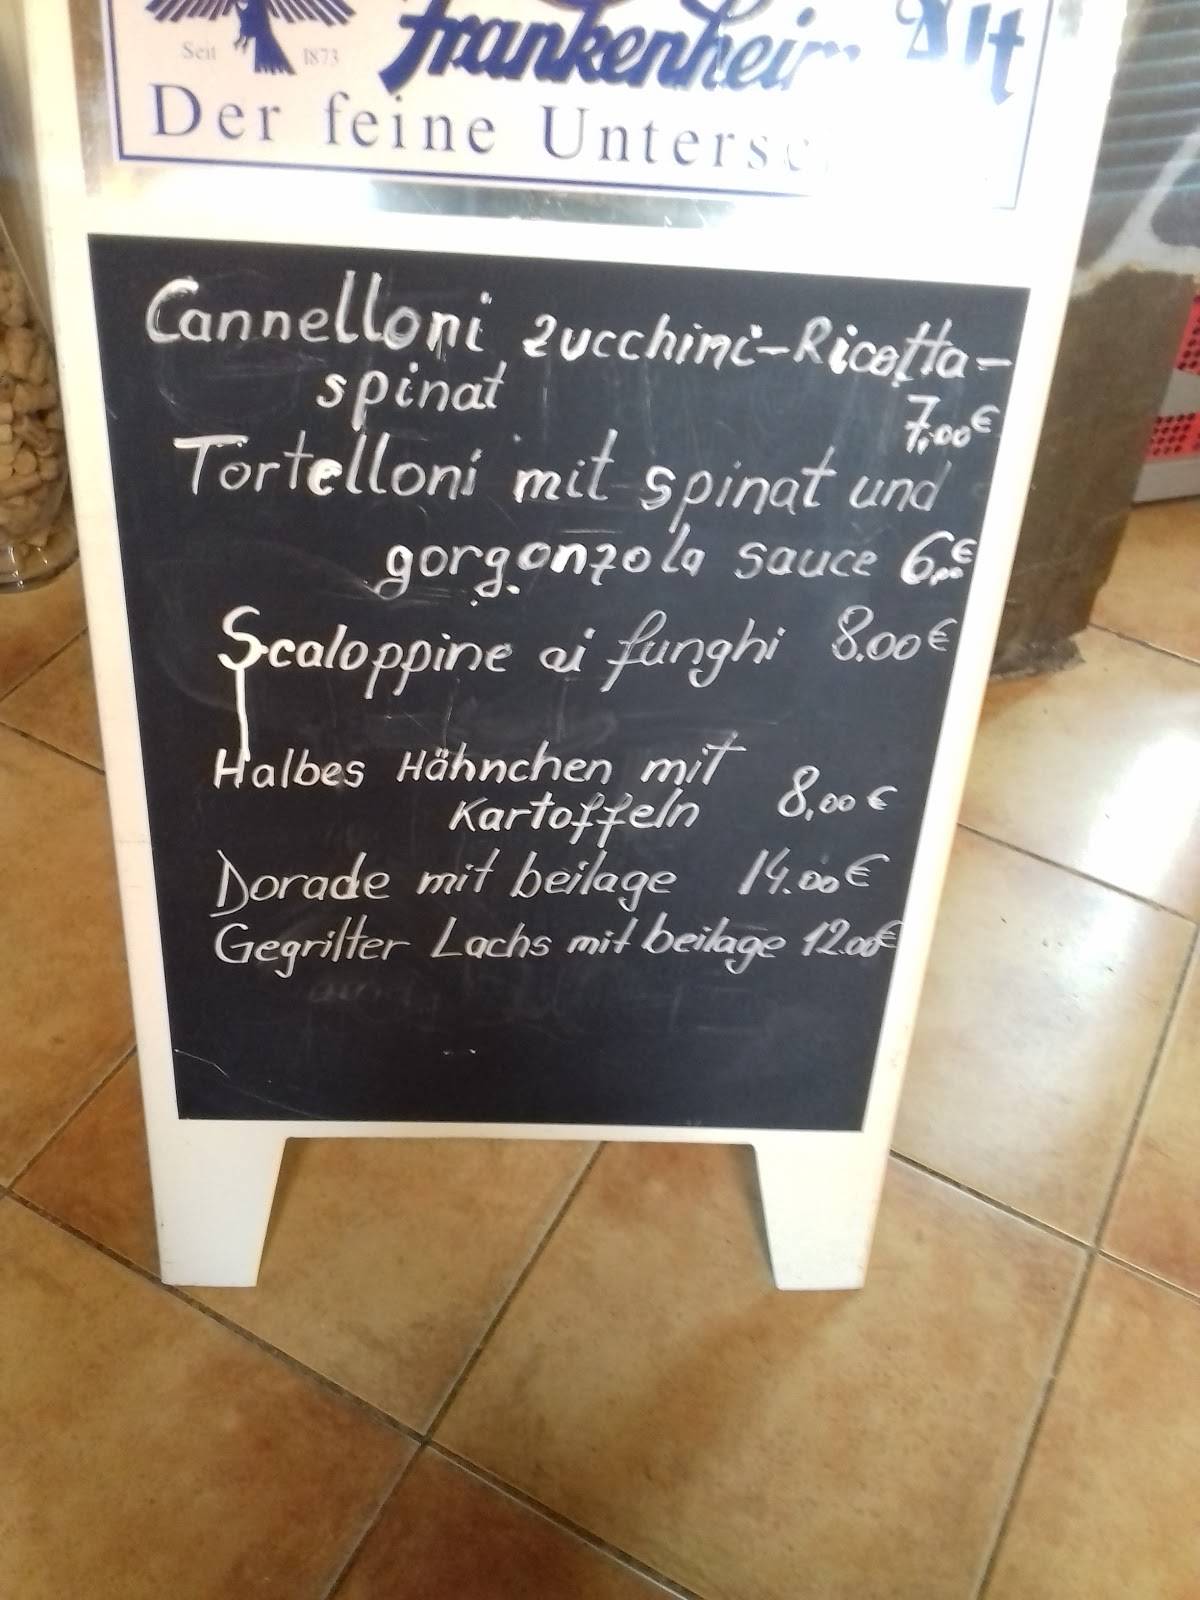 Seit 1873
Frankenheim Alt
Der feine
Cannelloni Zucchini-Ricotta-
spinat
7,00€
Tortelloni mit spinat und
gorgonzola sauce 6,00€
Scaloppine ai funghi 8.00€
Halbes Hähnchen mit
Kartoffeln 8,00€
Dorade mit beilage 14.00€
Gegrilter Lachs mit beilage 12.00€